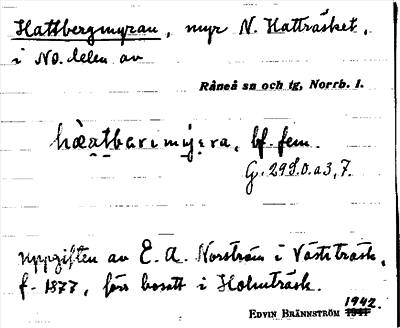 Hattbergmyran, myr N. Hatträsket,
i NO. delen av
Råneå sn och tg, Norrb. l.
hàatbarimyra, bf. fem.
G. 29S.o.a3,7.
uppgiften av E. A. Norström i Västiträsk,
f. 1877, förr bosatt i Holmträsk.
1942.
EDVIN BRÄNNSTRÖM 1941